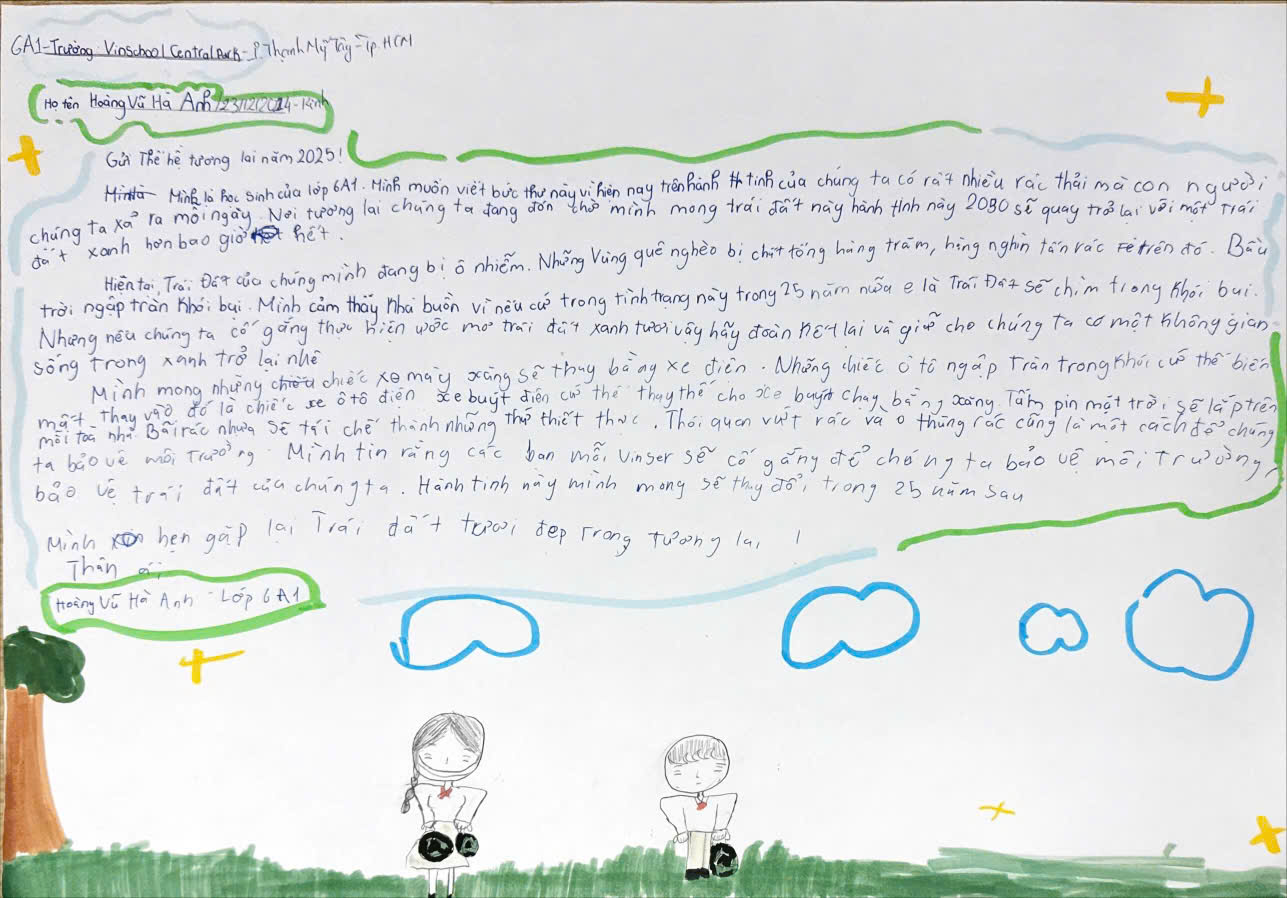 6A1-Trường: Vinschool Central Park - P. Thạnh Mỹ Tây - Tp. HCM
Họ tên Hoàng Vũ Hà Anh 23/12/2014 - Kinh
Gửi Thế hệ tương lai năm 2025!
Mình là học sinh của lớp 6A1. Mình muốn viết bức thư này vì hiện nay trên hành tinh của chúng ta có rất nhiều rác thải mà con người
chúng ta xả ra mỗi ngày. Nơi tương lai chúng ta đang đón chờ mình mong trái đất này hành tinh này 2080 sẽ quay trở lại với một trái
đất xanh hơn bao giờ hết.
Hiện tại, Trái Đất của chúng mình đang bị ô nhiễm. Những Vùng quê nghèo bị chất tống hàng trăm, hàng nghìn tấn rác trên đó. Bầu
trời ngập tràn khói bụi. Mình cảm thấy khá buồn vì nếu cứ trong tình trạng này trong 25 năm nữa e là Trái Đất sẽ chìm trong khói bụi.
Nhưng nếu chúng ta cố gắng thực hiện ước mơ trái đất xanh tươi vậy hãy đoàn kết lại và giữ cho chúng ta có một không gian
sống trong xanh trở lại nhé
Mình mong những chiếc xe máy xăng sẽ thay bằng xe điện. Những chiếc ô tô ngập tràn trong khói cứ thế biến
mất thay vào đó là chiếc xe ôtô điện xe buýt điện cứ thế thay thế cho xe buýt chạy bằng xăng. Tấm pin mặt trời sẽ lắp trên
mỗi toà nhà. Bãi rác nhựa sẽ tái chế thành những thứ thiết thực. Thói quen vứt rác vào thùng rác cũng là một cách để chúng
ta bảo vệ môi trường. Mình tin rằng các bạn mỗi Vinser sẽ cố gắng để chúng ta bảo vệ môi trường,
bảo vệ trái đất của chúng ta. Hành tinh này mình mong sẽ thay đổi trong 25 năm sau
Mình hẹn gặp lại Trái đất tươi đẹp trong tương lai !
Thân ái
Hoàng Vũ Hà Anh - Lớp 6A1